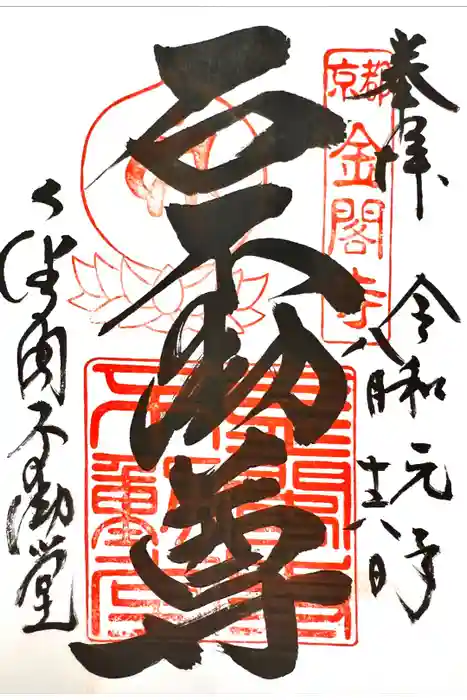 奉拝 令和元年
八月十六日
京都
金閣寺
石不動尊
不動堂